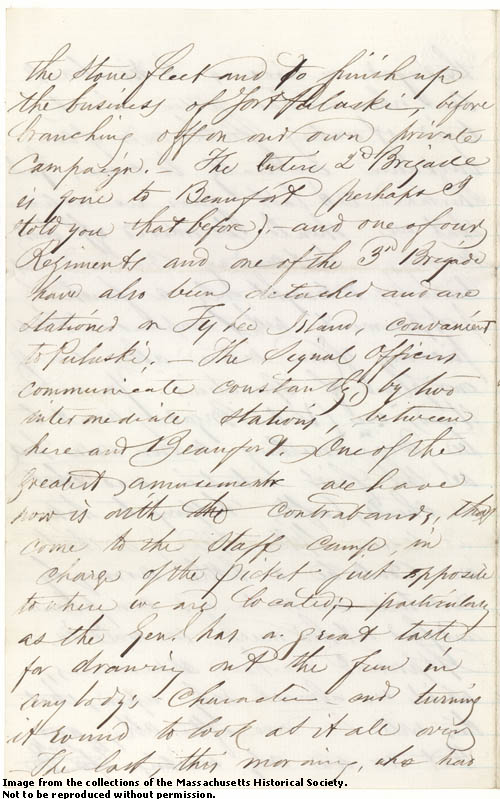 the Stone fleet and to finish up
the business of Fort Pulaski, before
branching off on our own private
Campaign. - The entire 2d Brigade
is gone to Beaufort (perhaps I
told you that before). - and one of our
Regiments and one of the 3rd Brigade
have also been detached and are
stationed on Tybee Island, convenient
to Pulaski. - The Signal Officers
communicate constantly, by two
intermediate stations, between
here and Beaufort. One of the
greatest amusements we have
now is with the contrabands, that
come to the Staff camp, in
charge of the picket just opposite
to where we are located; - particularly
as the Genl. has a great taste
for drawing out the fun in
anybody's character and turning
it round to look at it all over
- The last, this morning, who had
Image from the collections of the Massachusetts Historical Society.
Not to be reproduced without permission.